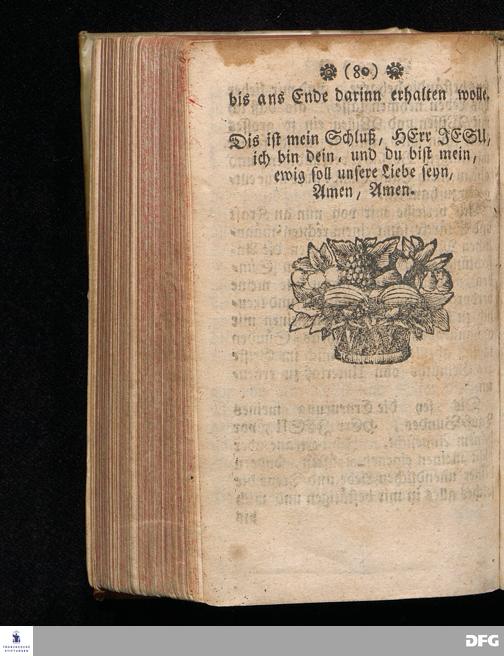 (80)
bis ans Ende darinn erhalten wolle.
Dis ist mein Schluß, HErr JESU,
ich bin dein, und du bist mein,
ewig soll unsere Liebe seyn,
Amen, Amen.
FRANCKESCHE
STIFTUNGEN
DFG